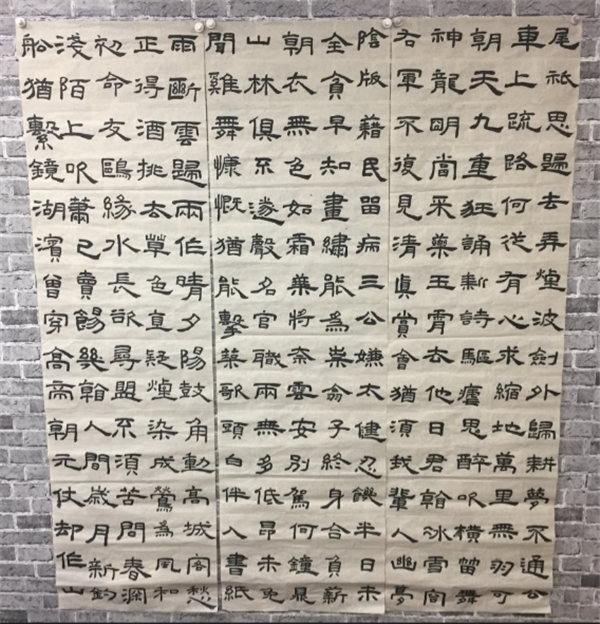 尾祇思歸去弄煙波劍外歸耕夢不通公
車上疏路何從有心求縮地萬里無羽可
朝天九重狂誦新詩驅瘧思醉吹橫笛舞
神龍明當采藥玉霄去他日君翰冰雪
右軍不復見清真賞會猶須我輩人幽夢
陰版藉民留病三公嫌太健忍饑半日未
全貪早知畫繡能為祟翕子終身合負薪
朝衣無色如霜葉將奈雲安別駕何鐘晨
山林俱不遂聲名官職兩無多低昂未免
聞雞舞慷慨猶能擊築歌頭白伴人書紙
雨斷雲歸兩作晴夕陽鼓角動高城客愁
正得酒挑太草色直疑煙染成鶯為風和
初命友鷗緣水長欲尋盟不須苦問春瀾
淺陌上吹簫已賣餳幾翰人間歲月新釣
船猶繫鏡湖濱曾穿高帝朝元仗却作山